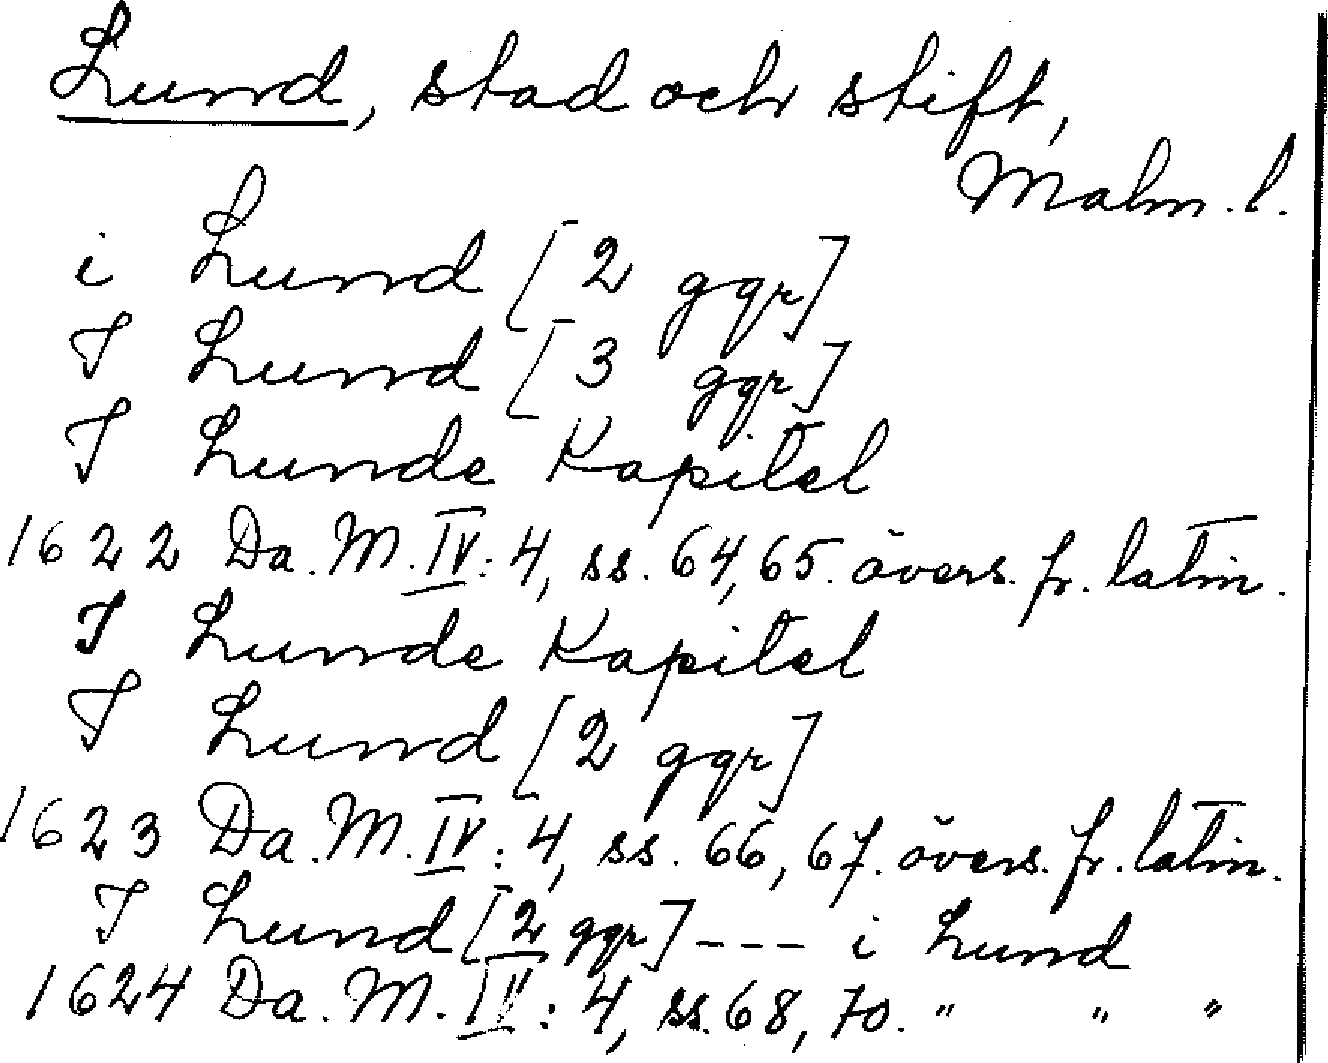 Lund, stad och stift,
Malm. l.
i Lund [2 ggr]
I Lund [3 ggr]
I Lunde Kapitel
1622 Da. M. IV: 4, ss. 64, 65. övers. fr. latin.
I Lunde Kapitel
I Lund [2 ggr]
1623 Da. M. IV: 4, ss. 66, 67. övers. fr. latin.
I Lund [2 ggr] --- i Lund
1624 Da. M. IV: 4, ss. 68, 70. " " "